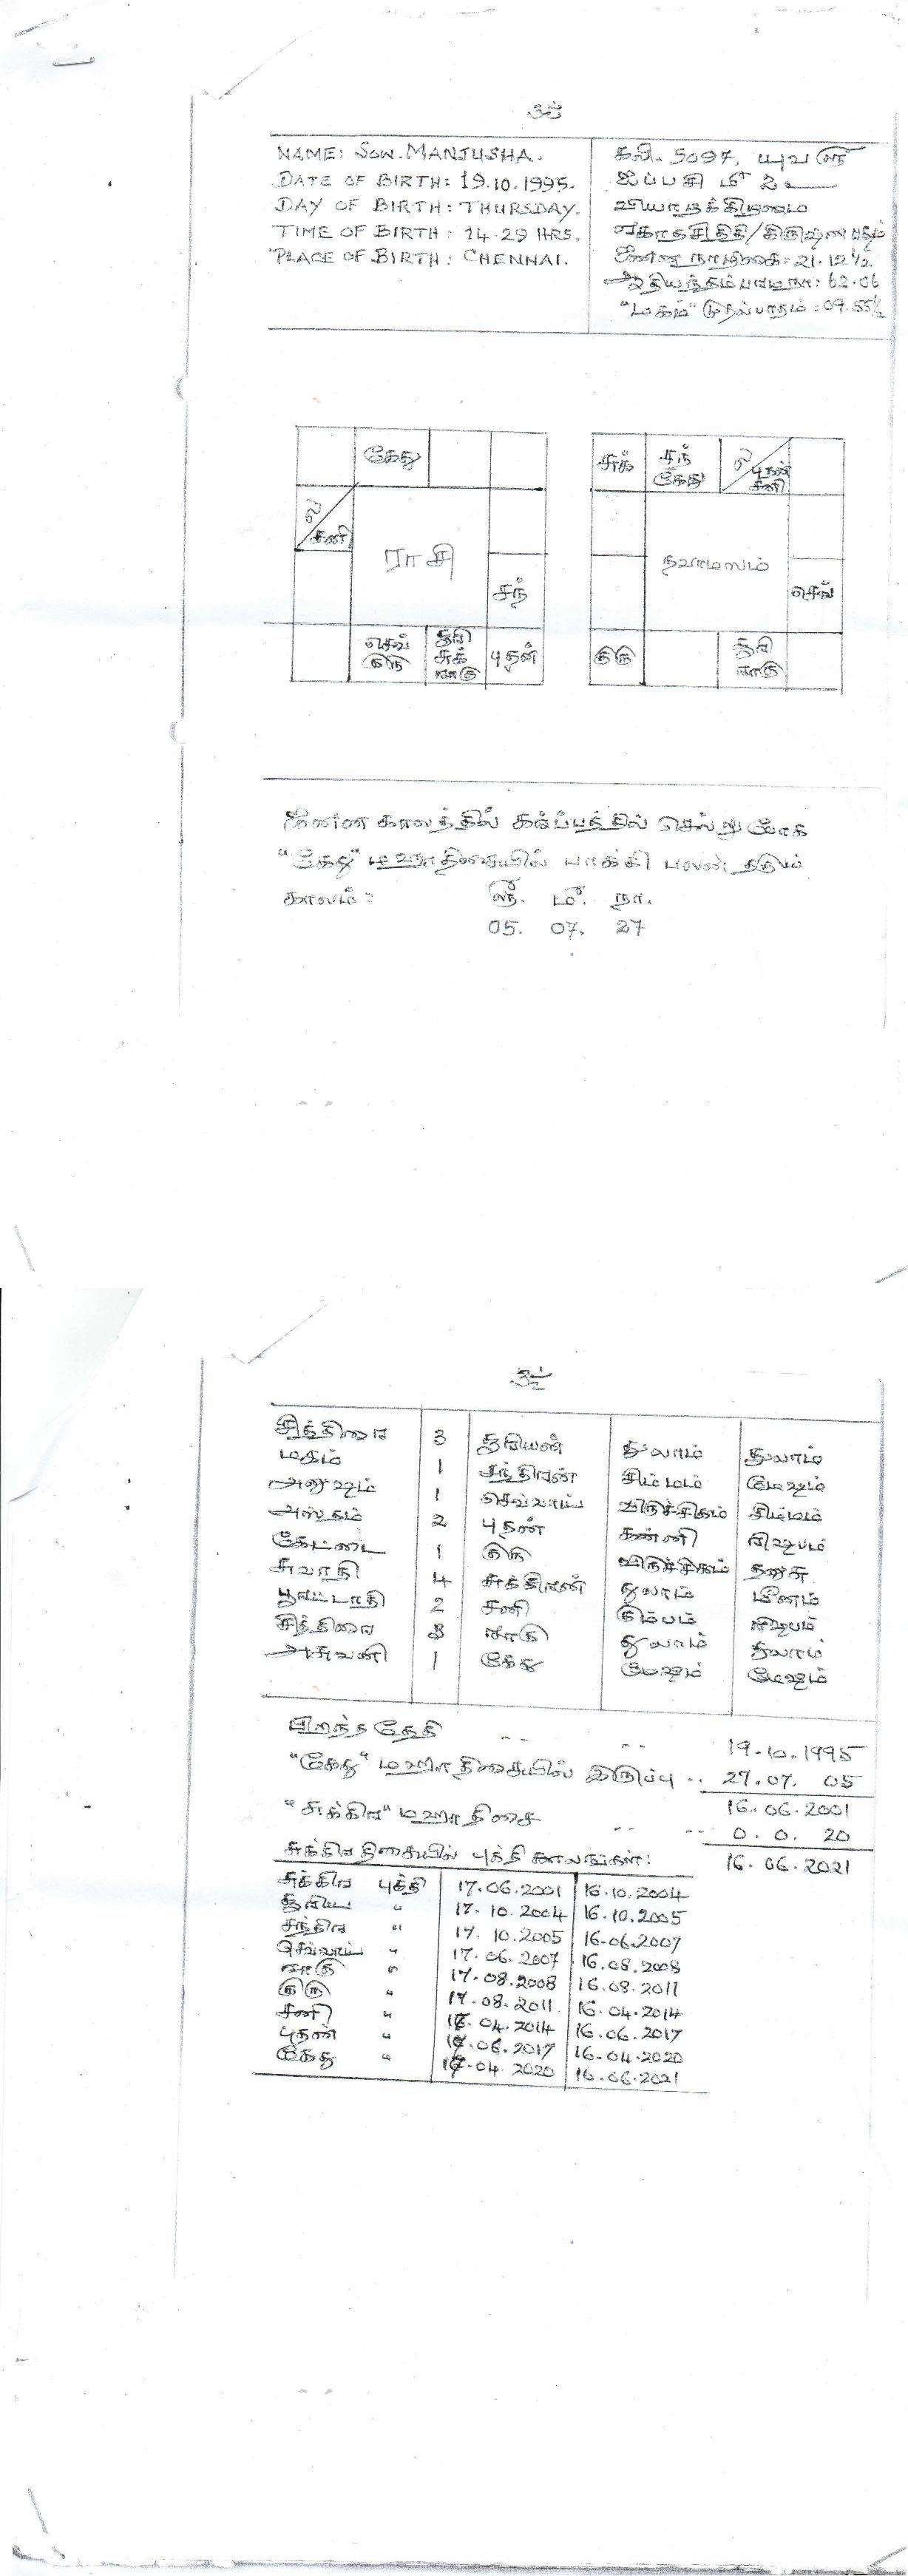 உ
NAME: SOW. MANJUSHA.
DATE OF BIRTH: 19.10.1995.
DAY OF BIRTH: THURSDAY.
TIME OF BIRTH: 14.29 HRS.
PLACE OF BIRTH: CHENNAI.
கலி. 5097, யுவ ௵
ஐப்பசி ௴ 2
வியாழக்கிழமை
ஏகாதசி திதி/கிருஷ்ண பக்ஷம்
ஜனன நாழிகை: 21.12½
ஆதியந்தம் பரம நா: 62.06
"மகம்" முதல் பாதம்: 09.55½
கேது
ல சனி
ராசி
சந்
செவ் குரு
சூரி சுக் ராகு
புதன்
சுக்
சந் கேது
ல புதன் சனி
நவாம்ஸம்
செவ்
குரு
சூரி ராகு
ஜனன காலத்தில் கர்ப்பத்தில் செல்லு போக
"கேது" மஹா திசையில் பாக்கி பலன் தரும்
காலம்: ௵. ௴. நா.
05. 07. 27
உ
சித்திரை 3 சூரியன் துலாம் துலாம்
மகம் 1 சந்திரன் சிம்மம் மேஷம்
அனுஷம் 1 செவ்வாய் விருச்சிகம் சிம்மம்
அஸ்தம் 2 புதன் கன்னி ரிஷபம்
கேட்டை 1 குரு விருச்சிகம் தனுசு
சுவாதி 4 சுக்கிரன் துலாம் மீனம்
பூரட்டாதி 2 சனி கும்பம் ரிஷபம்
சித்திரை 3 ராகு துலாம் துலாம்
அசுவனி 1 கேது மேஷம் மேஷம்
பிறந்த தேதி -- -- 19.10.1995
"கேது" மஹா திசையில் இருப்பு .. 27.07. 05
16.06.2001
"சுக்கிர" மஹா திசை -- -- 0. 0. 20
16.06.2021
சுக்கிர திசையில் புக்தி காலங்கள்:
சுக்கிர புக்தி 17.06.2001 16.10.2004
சூரிய " 17.10.2004 16.10.2005
சந்திர " 17.10.2005 16.06.2007
செவ்வாய் " 17.06.2007 16.08.2008
ராகு " 17.08.2008 16.08.2011
குரு " 17.08.2011 16.04.2014
சனி " 17.04.2014 16.06.2017
புதன் " 17.06.2017 16.04.2020
கேது " 17.04.2020 16.06.2021